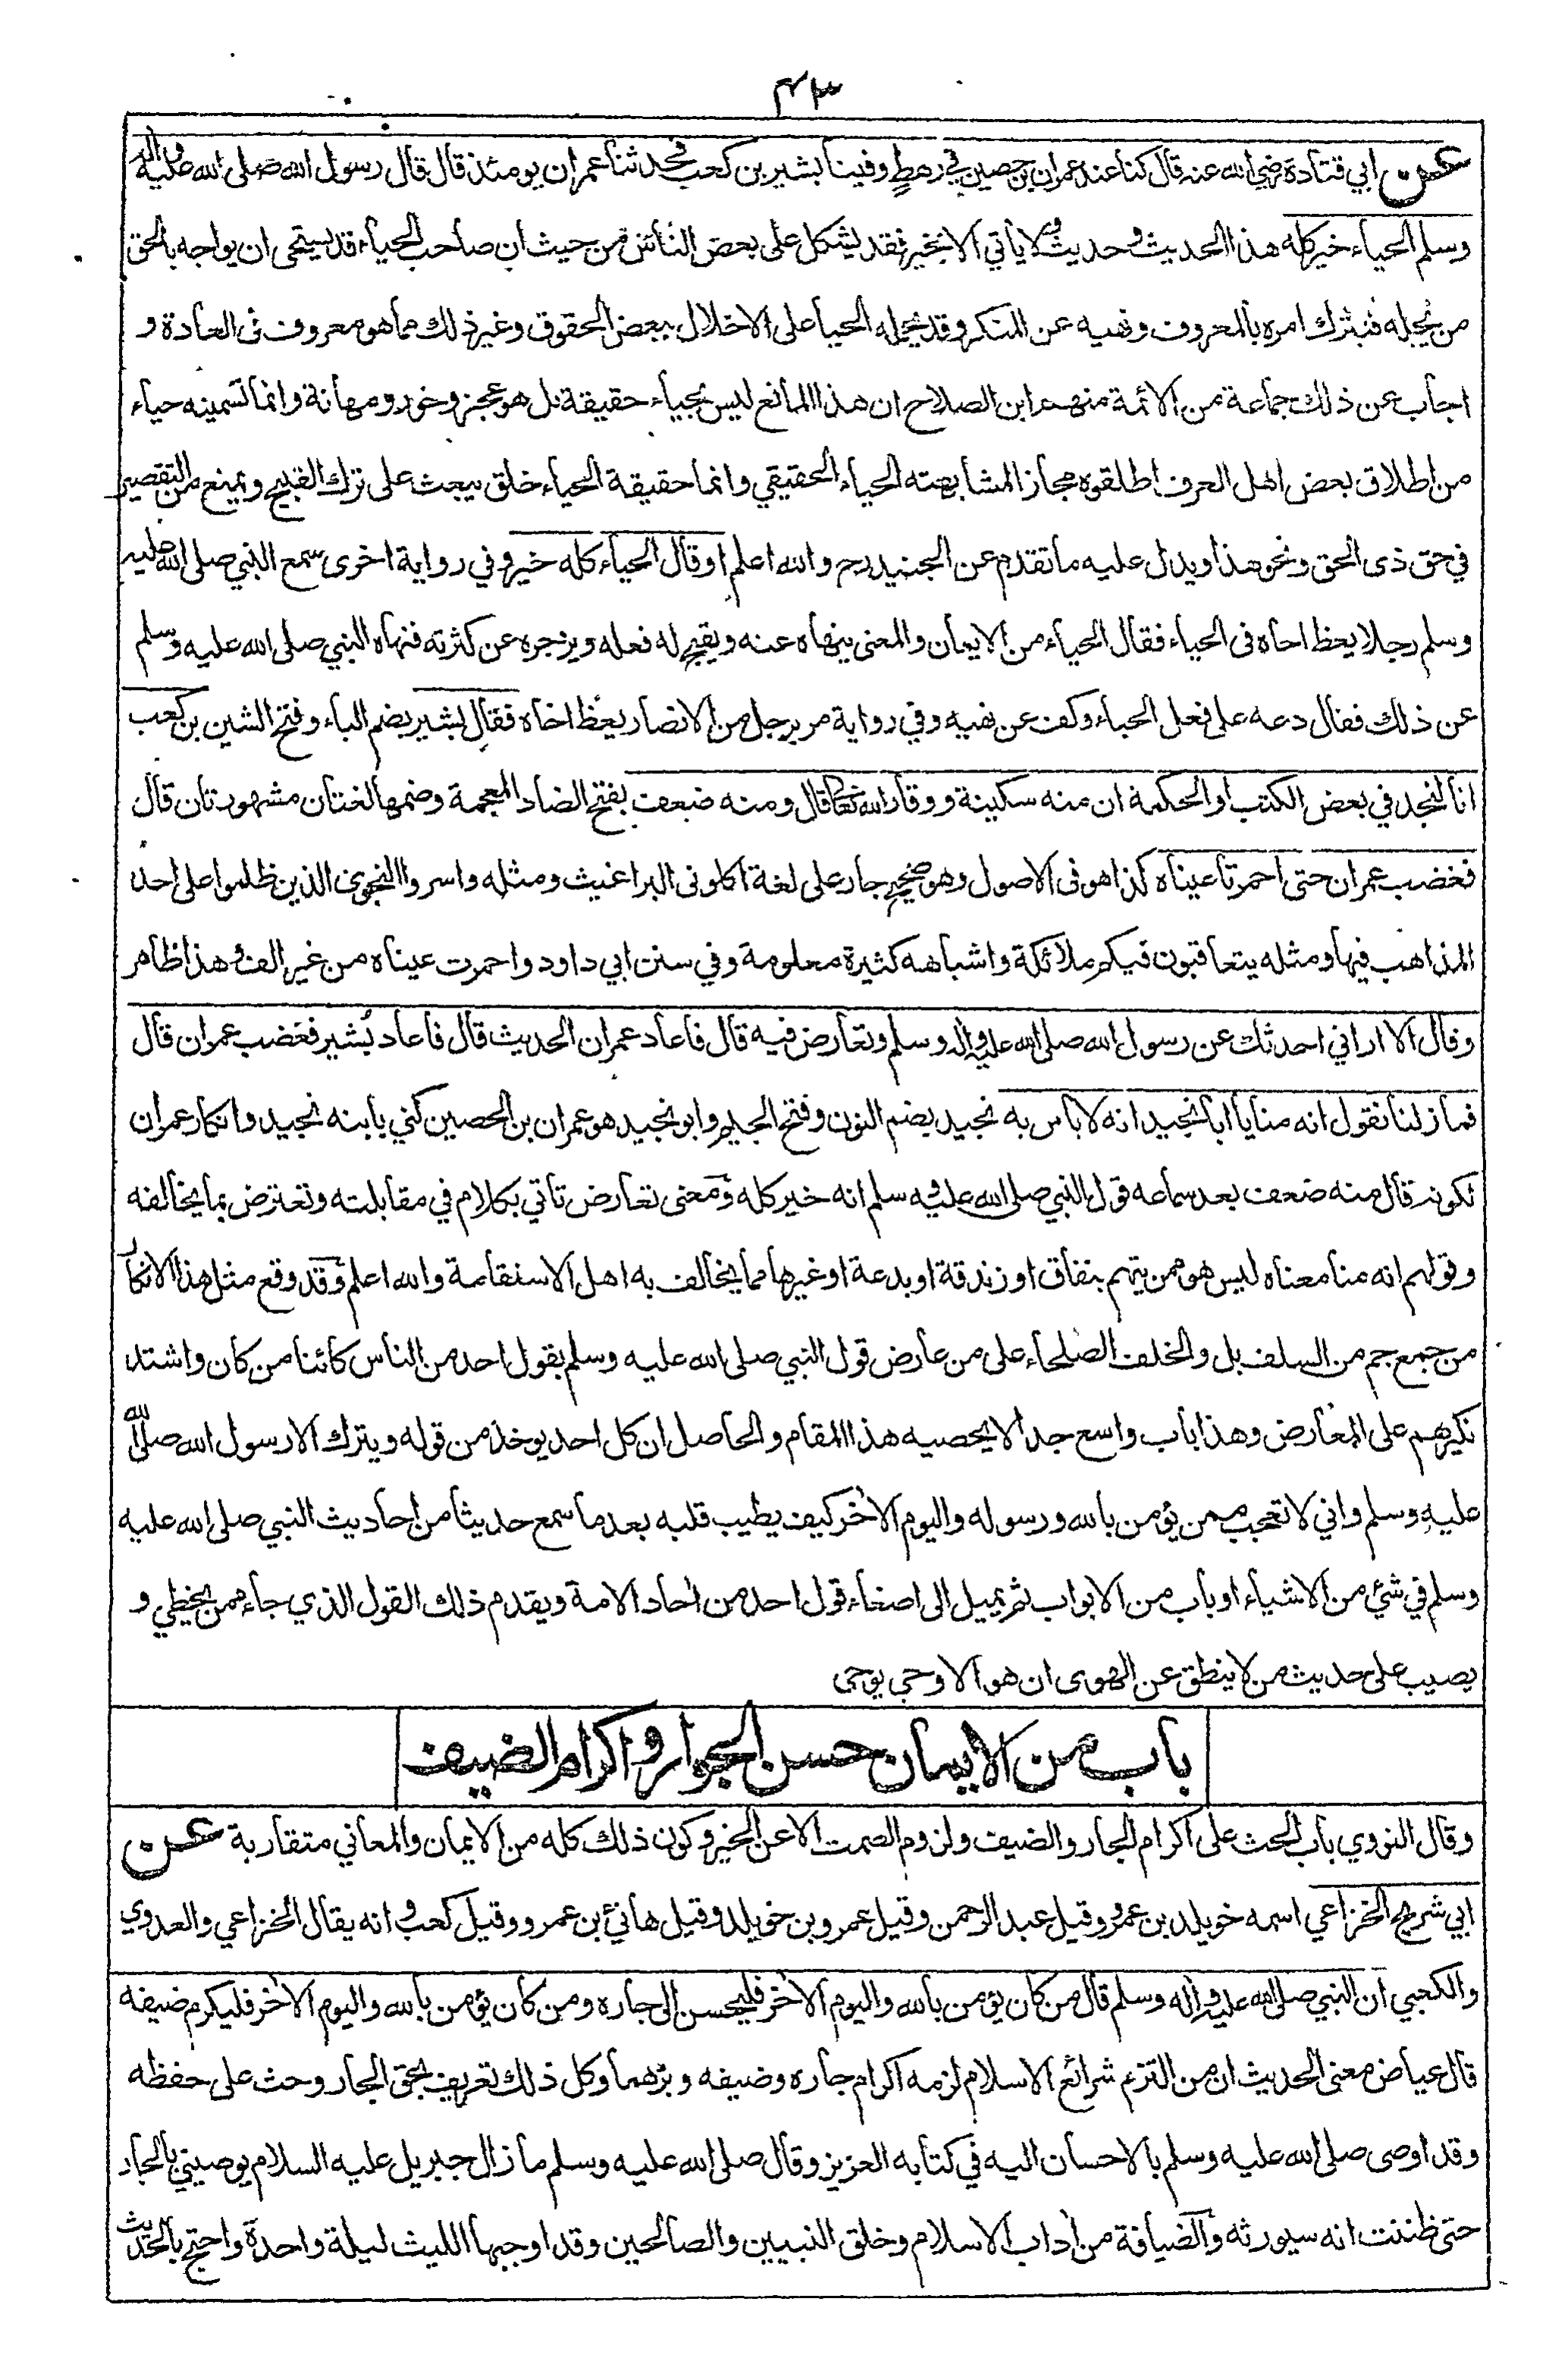 ٤٣
عن ابي قتادة رضي الله عنه قال كنا عند عمران بن حصين في رهط وفينا بشير بن كعب فحدثنا عمران يومئذ قال قال رسول الله صلى الله عليه واله
وسلم الحياء خير كله هذا الحديث وحديث لا ياتي الا بخير فقد يشكل على بعض الناس من حيث ان صاحب الحياء قد يستحي ان يواجه بالحق
من يجله فيترك امره بالمعروف ونهيه عن المنكر وقد يحمله الحيا على الاخلال ببعض الحقوق وغير ذلك مما هو معروف فى العادة و
اجاب عن ذلك جماعة من الائمة منهم ابن الصلاح ان هذا المانع ليس بحياء حقيقة بل هو عجز وخور ومهانة وانما تسمينه حياء
من اطلاق بعض اهل العرف اطلقوه مجاز المشابهته الحياء الحقيقي وانما حقيقة الحياء خلق يبعث على ترك القبيح ويمنع من التقصير
في حق ذى الحق ونحو هذا ويدل عليه ما تقدم عن الجنيد رح والله اعلم او قال الحياء كله خير وفي رواية اخرى سمع النبي صلى الله عليه
وسلم رجلا يعظ اخاه فى الحياء فقال الحياء من الايمان والمعنى ينهاه عنه ويقبح له فعله ويزجره عن كثرته فنهاه النبي صلى الله عليه وسلم
عن ذلك فقال دعه على فعل الحياء وكف عن نهيه وفي رواية مر برجل من الانصار يعظ اخاه فقال بشير بضم الباء وفتح الشين بن كعب
انا لنجد في بعض الكتب او الحكمة ان منه سكينة ووقار الله تعالى قال ومنه ضعف بفتح الضاد المعجمة وضمها لغتان مشهورتان قال
فغضب عمران حتى احمرتا عيناه كذا هو فى الاصول وهو صحيح جار على لغة اكلونى البراغيث ومثله واسروا النجوى الذين ظلموا على احد
المذاهب فيها ومثله يتعاقبون فيكم ملائكة واشباهه كثيرة معلومة وفي سنن ابي داود واحمرت عيناه من غير الف وهذا ظاهر
وقال الا اراني احدثك عن رسول الله صلى الله عليه واله وسلم وتعارض فيه قال فاعاد عمران الحديث قال فاعاد بُشير فغضب عمران قال
فما زلنا نقول انه منا يا ابا نجيد انه لا باس به نجيد بضم النون وفتح الجيم وابو نجيد هو عمران بن الحصين كني بابنه نجيد وانكار عمران
لكونه قال منه ضعف بعد سماعه قول النبي صلى الله عليه وسلم انه خير كله ومعنى تعارض تاتي بكلام في مقابلته وتعترض بما يخالفه
وقولهم انه منا معناه ليس هو ممن يتهم بنفاق او زندقة او بدعة او غيرها مما يخالف به اهل الاستقامة والله اعلم وقد وقع مثل هذا الانكار
من جمع جم من السلف بل والخلف الصلحاء على من عارض قول النبي صلى الله عليه وسلم بقول احد من الناس كائنا من كان واشتد
نكيرهم على المعارض وهذا باب واسع جدا لا يحصيه هذا المقام والحاصل ان كل احد يوخذ من قوله ويترك الا رسول الله صلى الله
عليه وسلم واني لا تعجب ممن يؤمن بالله ورسوله واليوم الاخر كيف يطيب قلبه بعد ما سمع حديثا من احاديث النبي صلى الله عليه
وسلم في شئ من الاشياء او باب من الابواب ثم يميل الى اصغاء قول احد من احاد الامة ويقدم ذلك القول الذي جاء ممن يخطي و
يصيب على حديث من لا ينطق عن الهوى ان هو الا وحي يوحى
باب من الايمان حسن الجوار واكرام الضيف
وقال النووي باب الحث على اكرام الجار والضيف ولزوم الصمت الا عن الخير وكون ذلك كله من الايمان والمعاني متقاربة عن
ابي شريح الخزاعي اسمه خويلد بن عمرو وقيل عبد الرحمن وقيل عمرو بن خويلد وقيل هانئ بن عمرو وقيل كعب وانه يقال الخزاعي والعدوي
والكعبي ان النبي صلى الله عليه واله وسلم قال من كان يؤمن بالله واليوم الاخر فليحسن الى جاره ومن كان يؤمن بالله واليوم الاخر فليكرم ضيفه
قال عياض معنى الحديث ان من التزم شرائع الاسلام لزمه اكرام جاره وضيفه وبرهما وكل ذلك تعريف بحق الجار وحث على حفظه
وقد اوصى صلى الله عليه وسلم بالاحسان اليه في كتابه العزيز وقال صلى الله عليه وسلم ما زال جبريل عليه السلام يوصيني بالجار
حتى ظننت انه سيورثه والضيافة من اداب الاسلام وخلق النبيين والصالحين وقد اوجبها الليث ليلة واحدة واحتج بالحديث